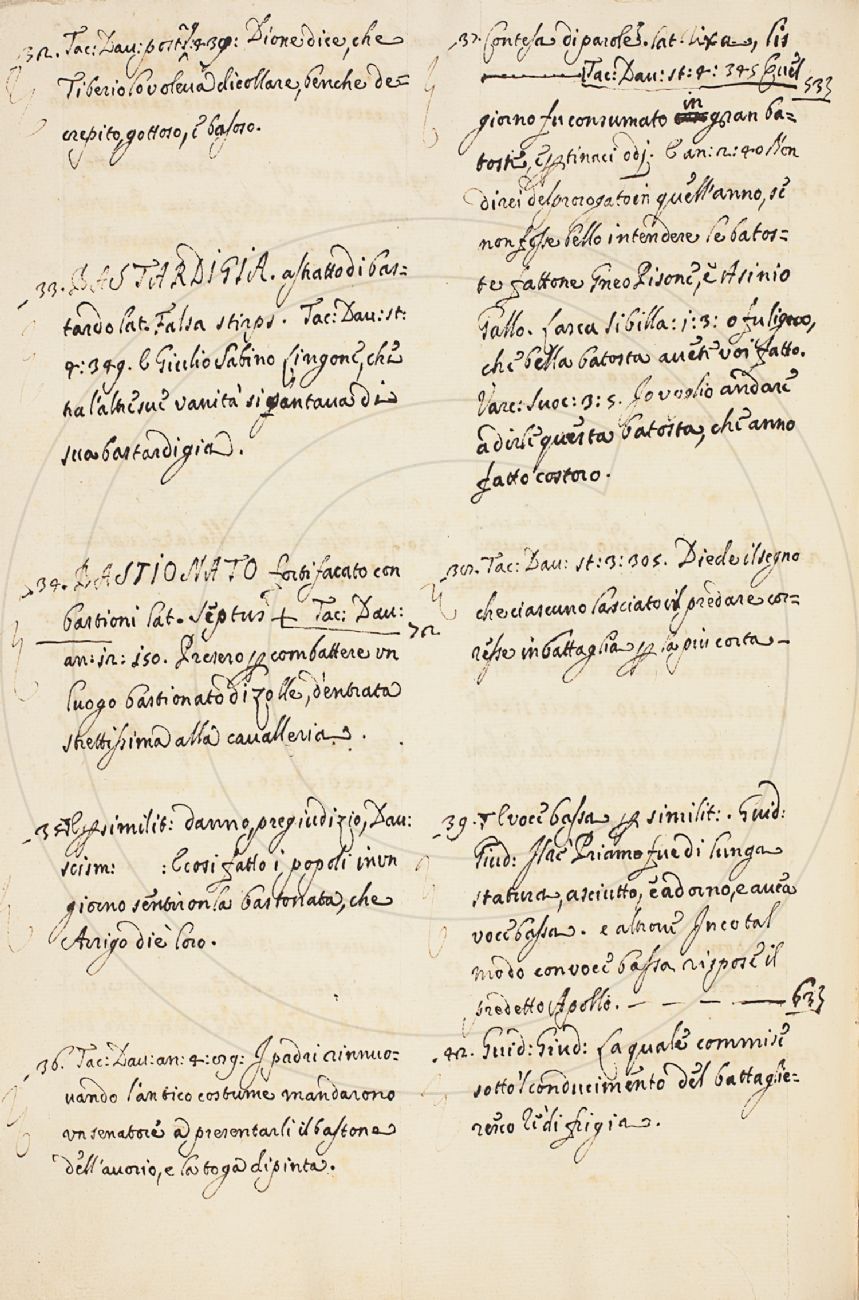 32. Tac: Dav: post: 439: Dione dice, che
Tiberio lo voleva dicollare, benche de=
crepito, gottoso, e basoso.
33. BASTARDIGIA. astratto di bas=
tardo lat. Falsa stirps. Tac: Dav: st:
4: 349. E Giulio Sabino Lingone, che
tra l'altre sue vanità si vantava di
sua bastardigia.
34. BASTIONATO fortificato con
bastioni lat. Septus + Tac: Dav:
72
an: 12: 150. Presero p combattere un
luogo bastionato di zolle, d'entrata
strettissima alla cavalleria.
35. E p similit: danno, pregiudizio, Dav:
scism: : E così fatto i popoli in un
giorno sentiron la bastonata, che
Arrigo diè loro.
36. Tac: Dav: an: 4: 89: I padri rinnuo=
vando l'antico costume mandarono
un senatore a presentarli il bastone
dell'avorio, e la toga dipinta.
37. Contesa di parole. lat. rixa, lis
Tac: Dav: st: 4: 345 E quel
533
giorno fu consumato in gran ba=
toste, e ptinaci odj. E an: 2: 40 Non
direi del prorogato in quell'anno, se
non fosse bello intendere le batos=
te fattone Gneo Pisone, e Asinio
Gallo. Lasca Sibilla: 1: 3: o fuligno,
che bella batosta avete voi fatto.
Varc: Suoc: 3: 5. Io voglio andare
a dirle questa batosta, che anno
fatto costoro.
38. Tac: Dav: st: 3: 305. Diede il segno
che ciascuno lasciato il predare cor=
resse in battaglia p la più corta
39. E voce bassa p similit:. Guid:
Giud: Ilac Priamo fue di lunga
statura, asciutto, e adorno, e avea
voce bassa. e altrove In cotal
modo con voce bassa rispose il
predetto Apollo. — — — — 633
42. Guid: Giud: La quale commise
sotto 'l conducimento del battaglie=
resco Re di frigia.